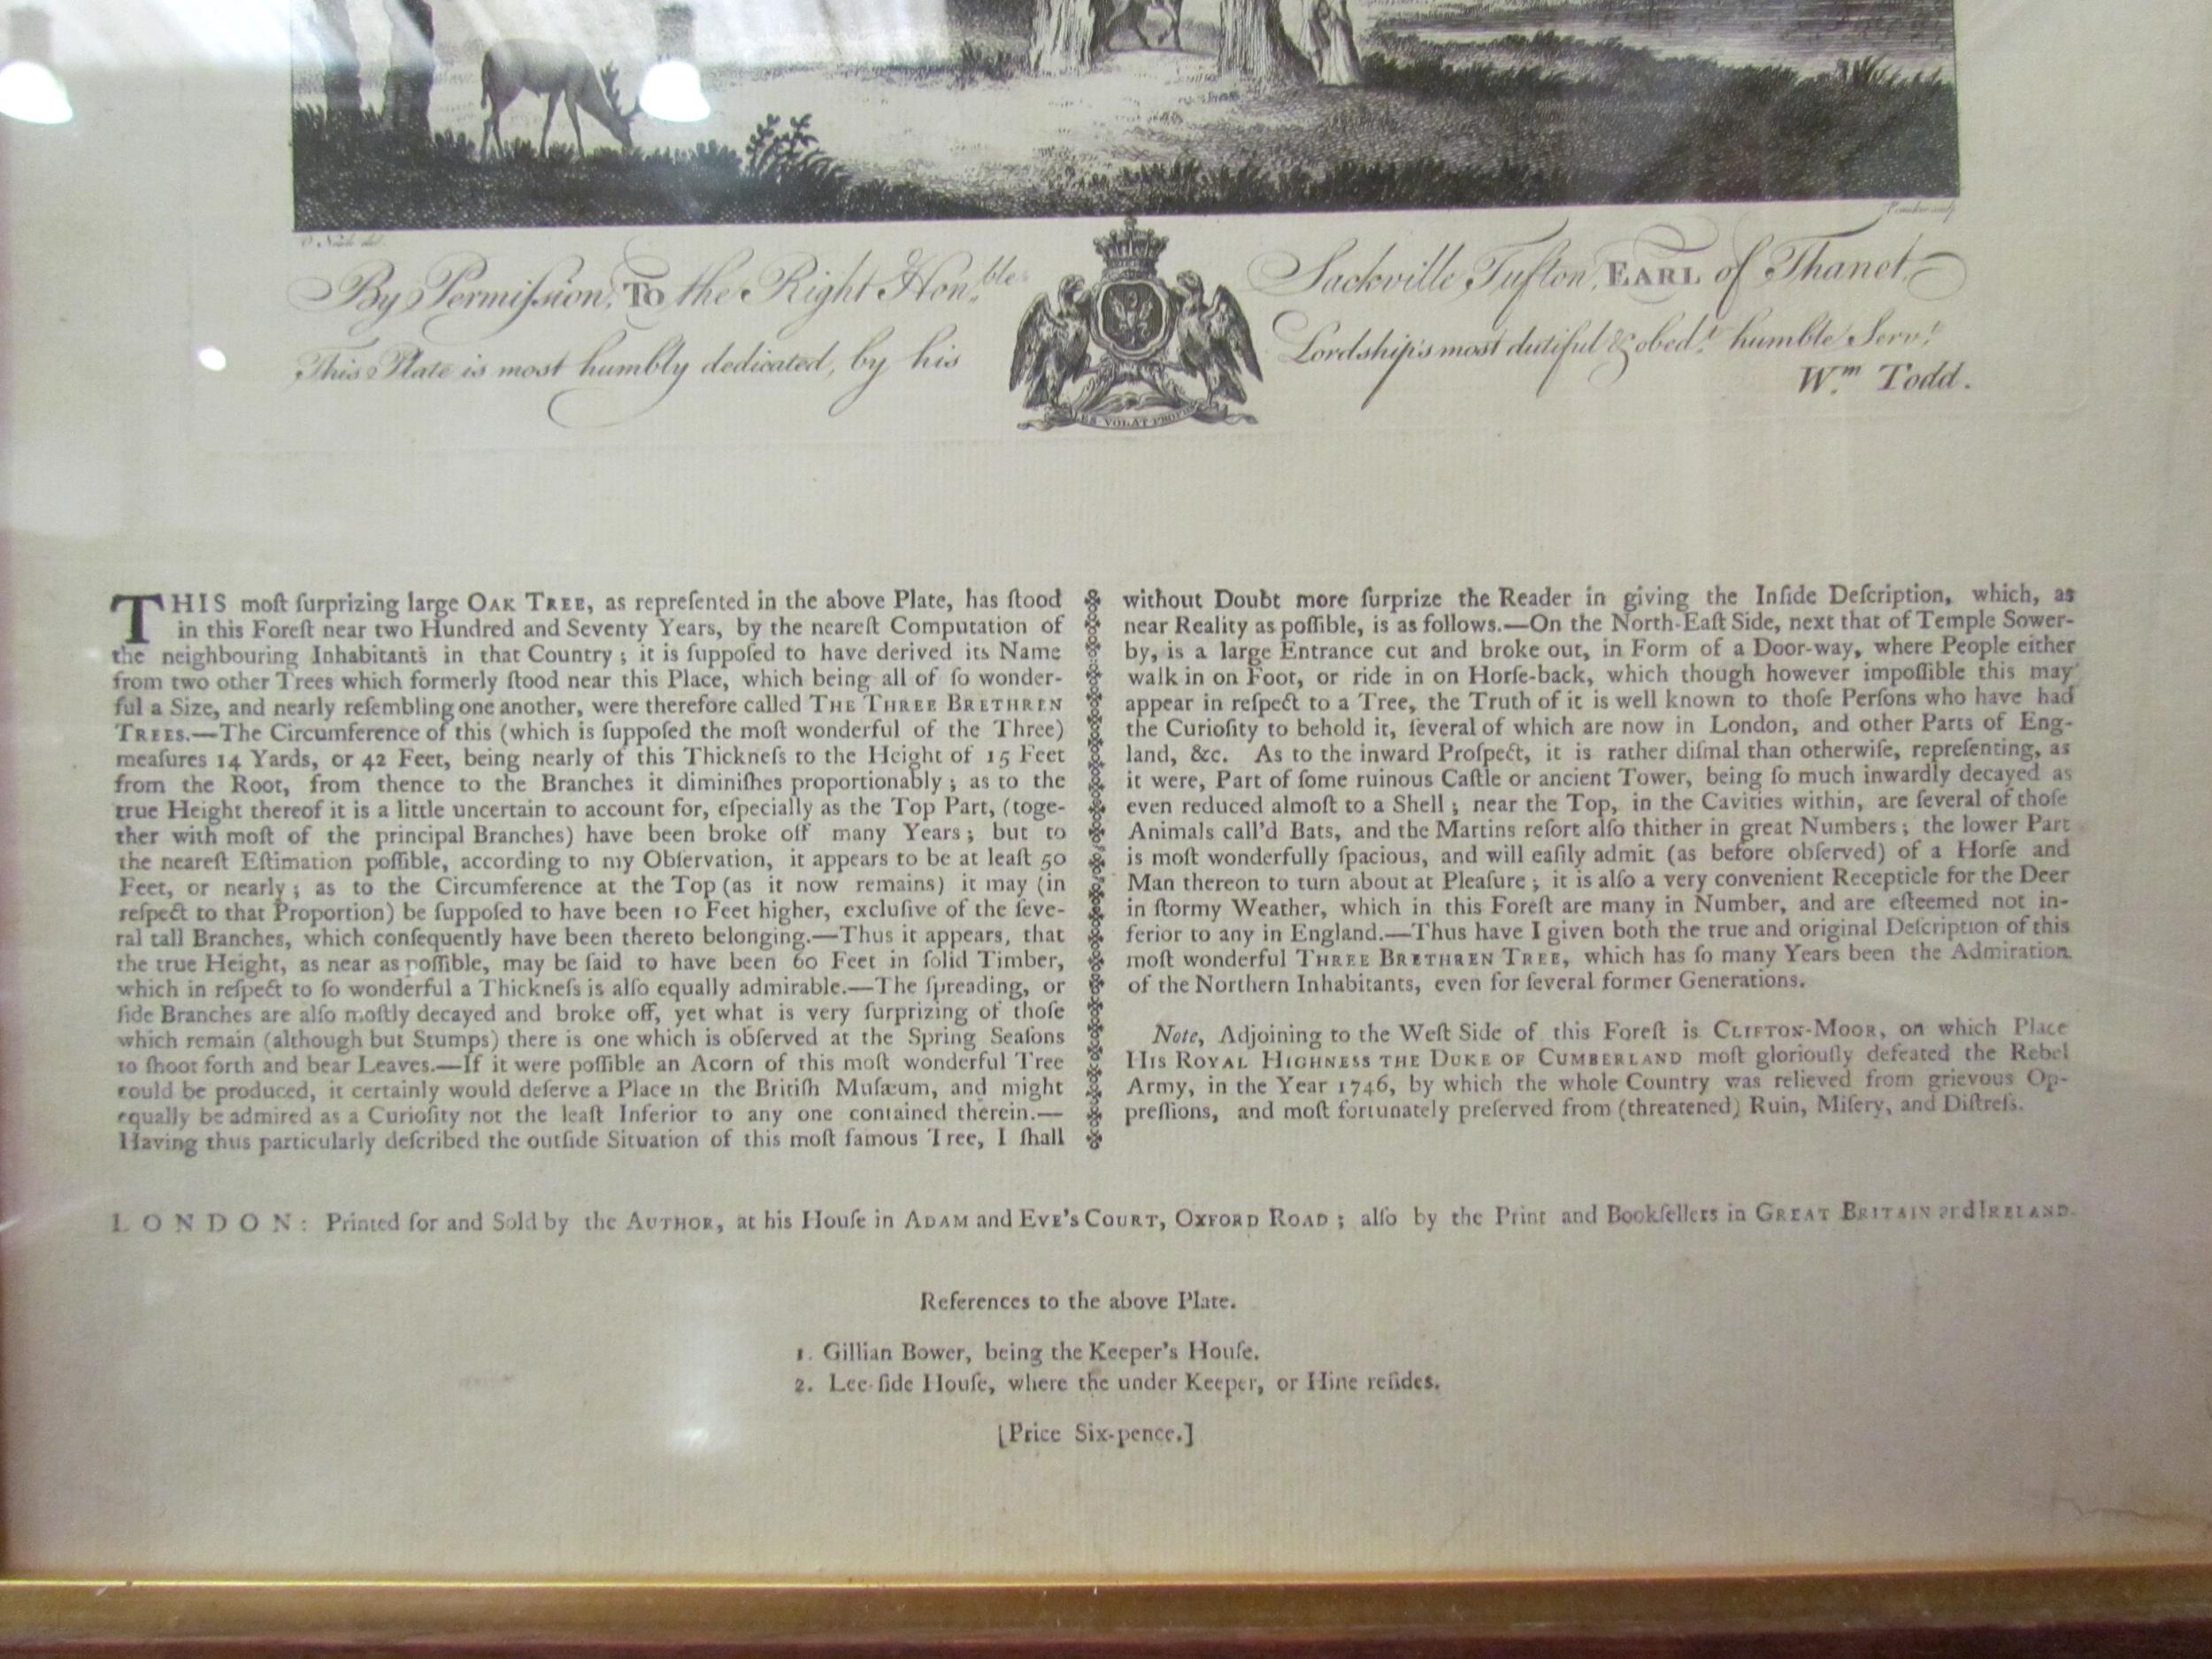 By Permiſsion, To the Right Hon.ble Sackville Tufton, EARL of Thanet,
This Plate is most humbly dedicated, by his Lordship's most dutiful & obed.t humble Serv.t
W.m Todd.
VOLAT
THIS moſt ſurprizing large OAK TREE, as repreſented in the above Plate, has ſtood
in this Foreſt near two Hundred and Seventy Years, by the neareſt Computation of
the neighbouring Inhabitants in that Country; it is ſuppoſed to have derived its Name
from two other Trees which formerly ſtood near this Place, which being all of ſo wonder-
ful a Size, and nearly reſembling one another, were therefore called THE THREE BRETHREN
TREES.—The Circumference of this (which is ſuppoſed the moſt wonderful of the Three)
meaſures 14 Yards, or 42 Feet, being nearly of this Thickneſs to the Height of 15 Feet
from the Root, from thence to the Branches it diminiſhes proportionably; as to the
true Height thereof it is a little uncertain to account for, eſpecially as the Top Part, (toge-
ther with moſt of the principal Branches) have been broke off many Years; but to
the neareſt Eſtimation poſſible, according to my Obſervation, it appears to be at leaſt 50
Feet, or nearly; as to the Circumference at the Top (as it now remains) it may (in
reſpect to that Proportion) be ſuppoſed to have been 10 Feet higher, excluſive of the ſeve-
ral tall Branches, which conſequently have been thereto belonging.—Thus it appears, that
the true Height, as near as poſſible, may be ſaid to have been 60 Feet in ſolid Timber,
which in reſpect to ſo wonderful a Thickneſs is alſo equally admirable.—The ſpreading, or
ſide Branches are alſo moſtly decayed and broke off, yet what is very ſurprizing of thoſe
which remain (although but Stumps) there is one which is obſerved at the Spring Seaſons
to ſhoot forth and bear Leaves.—If it were poſſible an Acorn of this moſt wonderful Tree
could be produced, it certainly would deſerve a Place in the Britiſh Muſæum, and might
equally be admired as a Curioſity not the leaſt Inferior to any one contained therein.—
Having thus particularly deſcribed the outſide Situation of this moſt famous Tree, I ſhall
without Doubt more ſurprize the Reader in giving the Inſide Deſcription, which, as
near Reality as poſſible, is as follows.—On the North-Eaſt Side, next that of Temple Sower-
by, is a large Entrance cut and broke out, in Form of a Door-way, where People either
walk in on Foot, or ride in on Horſe-back, which though however impoſſible this may
appear in reſpect to a Tree, the Truth of it is well known to thoſe Perſons who have had
the Curioſity to behold it, ſeveral of which are now in London, and other Parts of Eng-
land, &c. As to the inward Proſpect, it is rather diſmal than otherwiſe, repreſenting, as
it were, Part of ſome ruinous Caſtle or ancient Tower, being ſo much inwardly decayed as
even reduced almoſt to a Shell; near the Top, in the Cavities within, are ſeveral of thoſe
Animals call'd Bats, and the Martins reſort alſo thither in great Numbers; the lower Part
is moſt wonderfully ſpacious, and will eaſily admit (as before obſerved) of a Horſe and
Man thereon to turn about at Pleaſure; it is alſo a very convenient Recepticle for the Deer
in ſtormy Weather, which in this Foreſt are many in Number, and are eſteemed not in-
ferior to any in England.—Thus have I given both the true and original Deſcription of this
moſt wonderful THREE BRETHREN TREE, which has ſo many Years been the Admiration
of the Northern Inhabitants, even for ſeveral former Generations.
Note, Adjoining to the Weſt Side of this Foreſt is CLIFTON-MOOR, on which Place
HIS ROYAL HIGHNESS THE DUKE OF CUMBERLAND moſt gloriouſly defeated the Rebel
Army, in the Year 1746, by which the whole Country was relieved from grievous Op-
preſſions, and moſt fortunately preſerved from (threatened) Ruin, Miſery, and Diſtreſs.
LONDON: Printed for and Sold by the AUTHOR, at his Houſe in ADAM and EVE'S COURT, OXFORD ROAD; alſo by the Print and Bookſellers in GREAT BRITAIN and IRELAND.
References to the above Plate.
1. Gillian Bower, being the Keeper's Houſe.
2. Lee-ſide Houſe, where the under Keeper, or Hine reſides.
[Price Six-pence.]